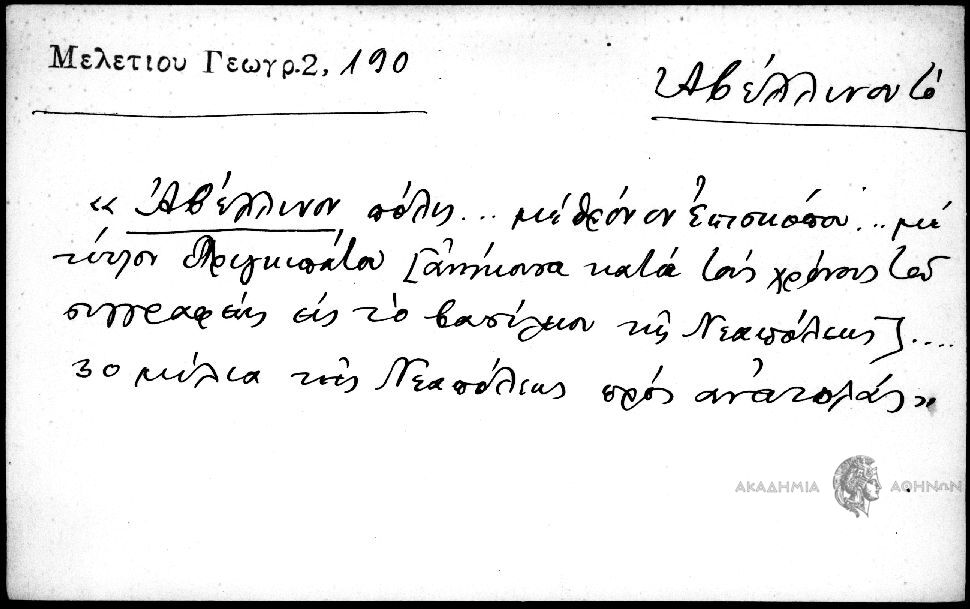 Μελετιου Γεωγρ.2, 190
Ἀβέλλινον τό
« Ἀβέλλινον πόλις ... μέ θρόνον Ἐπισκόπου ... μέ
τίτλον Πριγκιπάτου [ἀνήκουσα κατά τούς χρόνους τοῦ
συγγραφέως εἰς τό βασίλειον τῆς Νεαπόλεως] ....
30 μίλια τῆς Νεαπόλεως πρός ἀνατολάς»
ΑΚΑΔΗΜΙΑ ΑΘΗΝΩΝ